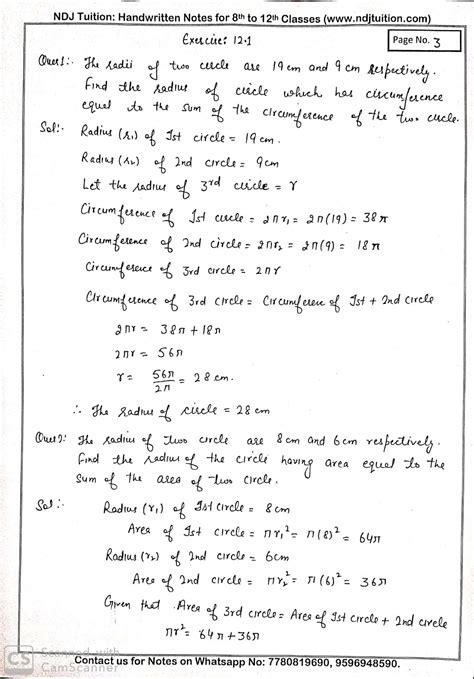 NDJ Tuition: Handwritten Notes for 8th to 12th Classes (www.ndjtuition.com)
Exercise: 12.1
Page No. 3
Ques1:- The radii of two circle are 19 cm and 9 cm respectively.
Find the radius of circle which has circumference
equal to the sum of the circumference of the two circle.
Sol:- Radius (r₁) of Ist circle = 19 cm.
Radius (r₂) of 2nd circle = 9cm
Let the radius of 3rd circle = r
Circumference of Ist circle = 2πr₁ = 2π(19) = 38π
Circumference of 2nd circle = 2πr₂ = 2π(9) = 18π
Circumference of 3rd circle = 2πr
Circumference of 3rd circle = Circumference of Ist + 2nd circle
2πr = 38π + 18π
2πr = 56π
r = 56π/2π = 28 cm.
∴ The Radius of circle = 28 cm
Ques2: The radius of two circle are 8cm and 6cm respectively.
Find the radius of the circle having area equal to the
sum of the area of two circle.
Sol:- Radius (r₁) of Ist circle = 8cm
Area of Ist circle = πr₁² = π(8)² = 64π
Radius (r₂) of 2nd circle = 6cm
Area of 2nd circle = πr₂² = π(6)² = 36π
Given that Area of 3rd circle = Area of Ist circle + 2nd circle
πr² = 64π + 36π
CS Scanned with
CamScanner
Contact us for Notes on Whatsapp No: 7780819690, 9596948590.